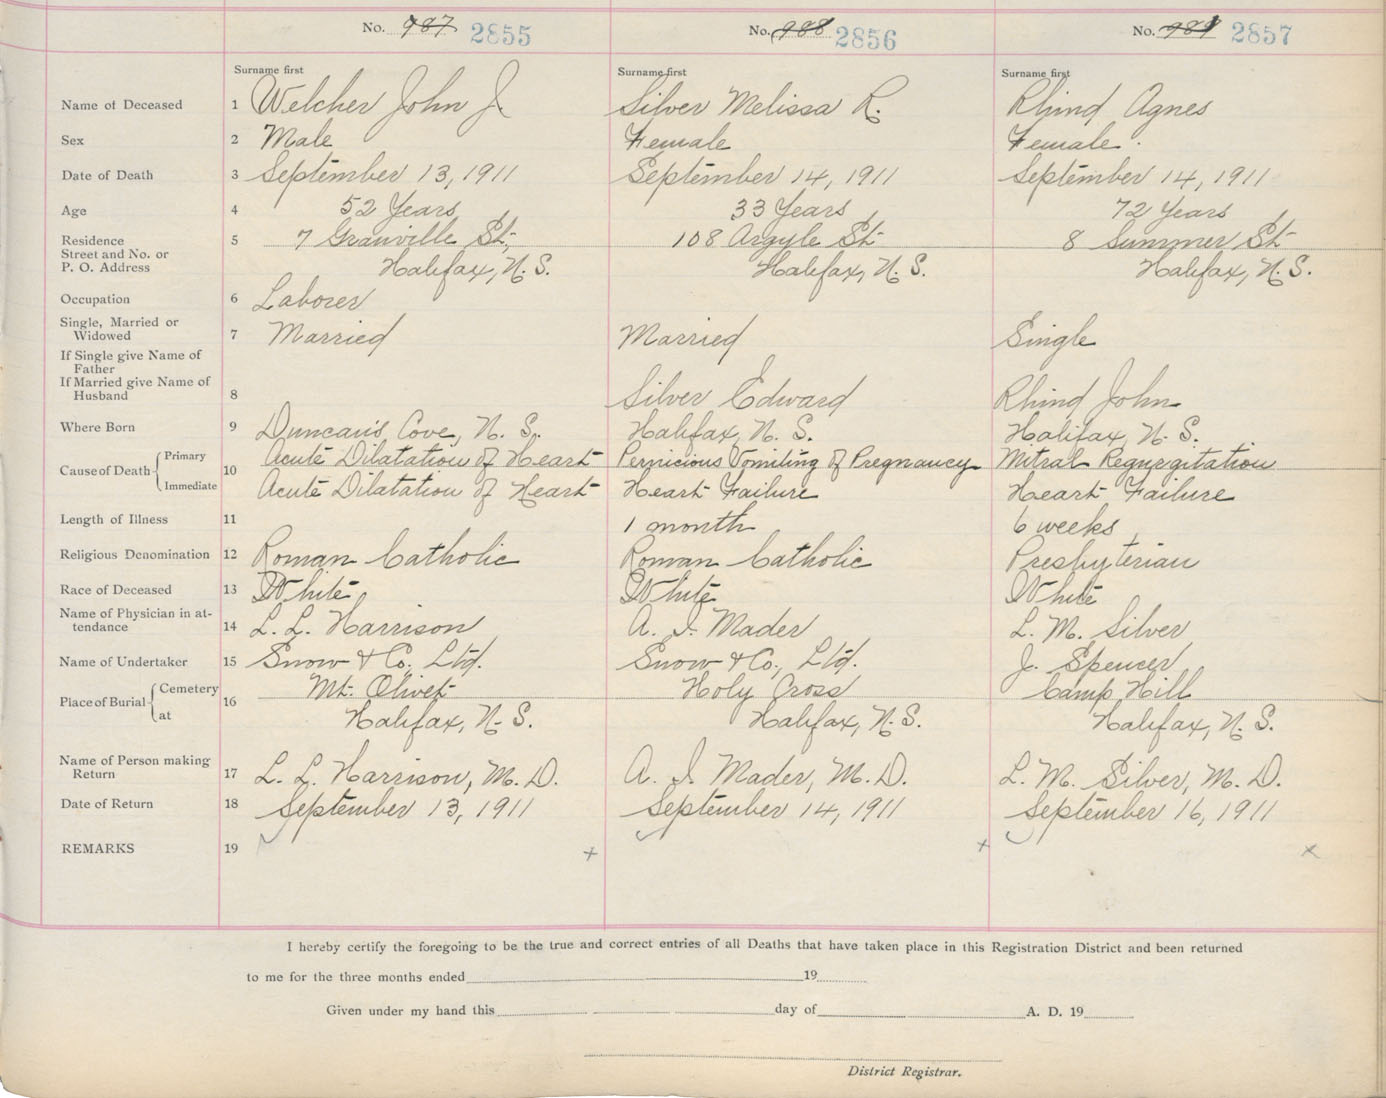 No. 987 2855 No. 988 2856 No. 989 2857
Surname first Surname first Surname first
Name of Deceased 1 Welcher John J. Silver Melissa R. Rhind Agnes
Sex 2 Male Female Female
Date of Death 3 September 13, 1911 September 14, 1911 September 14, 1911
Age 4 52 Years 33 Years 72 Years
Residence 5 7 Granville St. 108 Argyle St 8 Summer St
Street and No. or
P. O. Address Halifax, N. S. Halifax, N. S. Halifax, N. S.
Occupation 6 Laborer
Single, Married or
Widowed 7 Married Married Single
If Single give Name of
Father
If Married give Name of
Husband 8 Silver Edward Rhind John
Where Born 9 Duncan's Cove, N. S. Halifax, N. S. Halifax, N. S.
Cause of Death Primary 10 Acute Dilatation of Heart Pernicious Vomiting of Pregnancy Mitral Regurgitation
Immediate Acute Dilatation of Heart Heart Failure Heart Failure
Length of Illness 11 1 month 6 weeks
Religious Denomination 12 Roman Catholic Roman Catholic Presbyterian
Race of Deceased 13 White White White
Name of Physician in at-
tendance 14 L. L. Harrison A. I. Mader L. M. Silver
Name of Undertaker 15 Snow & Co. Ltd. Snow & Co., Ltd. J. Spencer
Place of Burial Cemetery 16 Mt. Olivet Holy Cross Camp Hill
at Halifax, N. S. Halifax, N. S. Halifax, N. S.
Name of Person making
Return 17 L. L. Harrison, M. D. A. I. Mader, M. D. L. M. Silver, M. D.
Date of Return 18 September 13, 1911 September 14, 1911 September 16, 1911
REMARKS 19 + + x
I hereby certify the foregoing to be the true and correct entries of all Deaths that have taken place in this Registration District and been returned
to me for the three months ended 19
Given under my hand this day of A. D. 19
District Registrar.